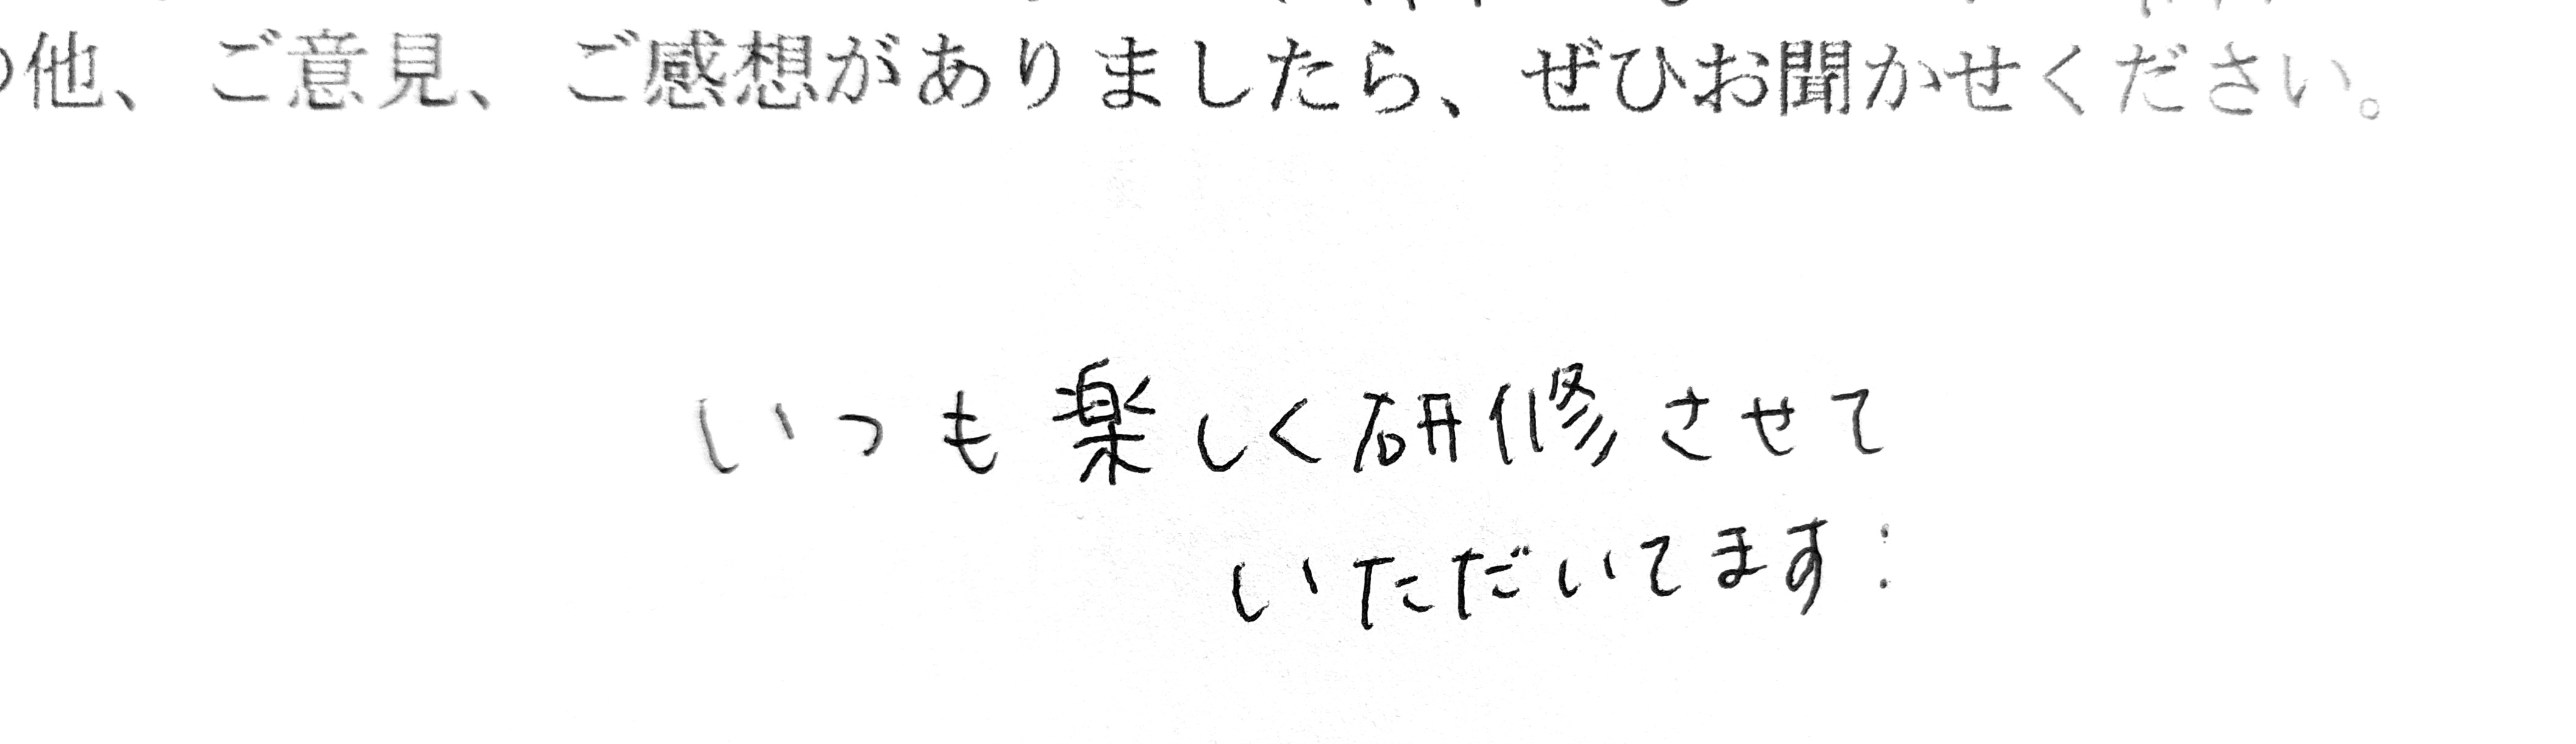 の他、ご意見、ご感想がありましたら、ぜひお聞かせください。
いつも楽しく研修させて
いただいてます: